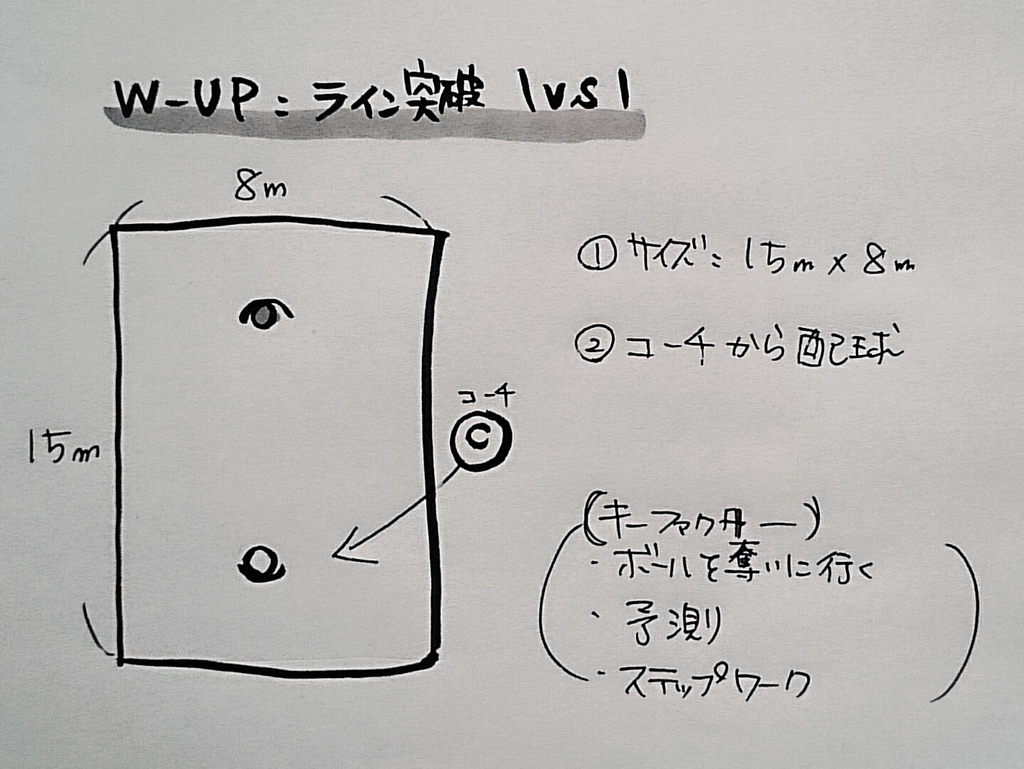 W-UP：ライン突破 1vs1
8m
① サイズ：15m × 8m
② コーチから配球
コーチ
C
15m
(キーファクター)
・ボールを奪いに行く
・予測り
・ステップワーク